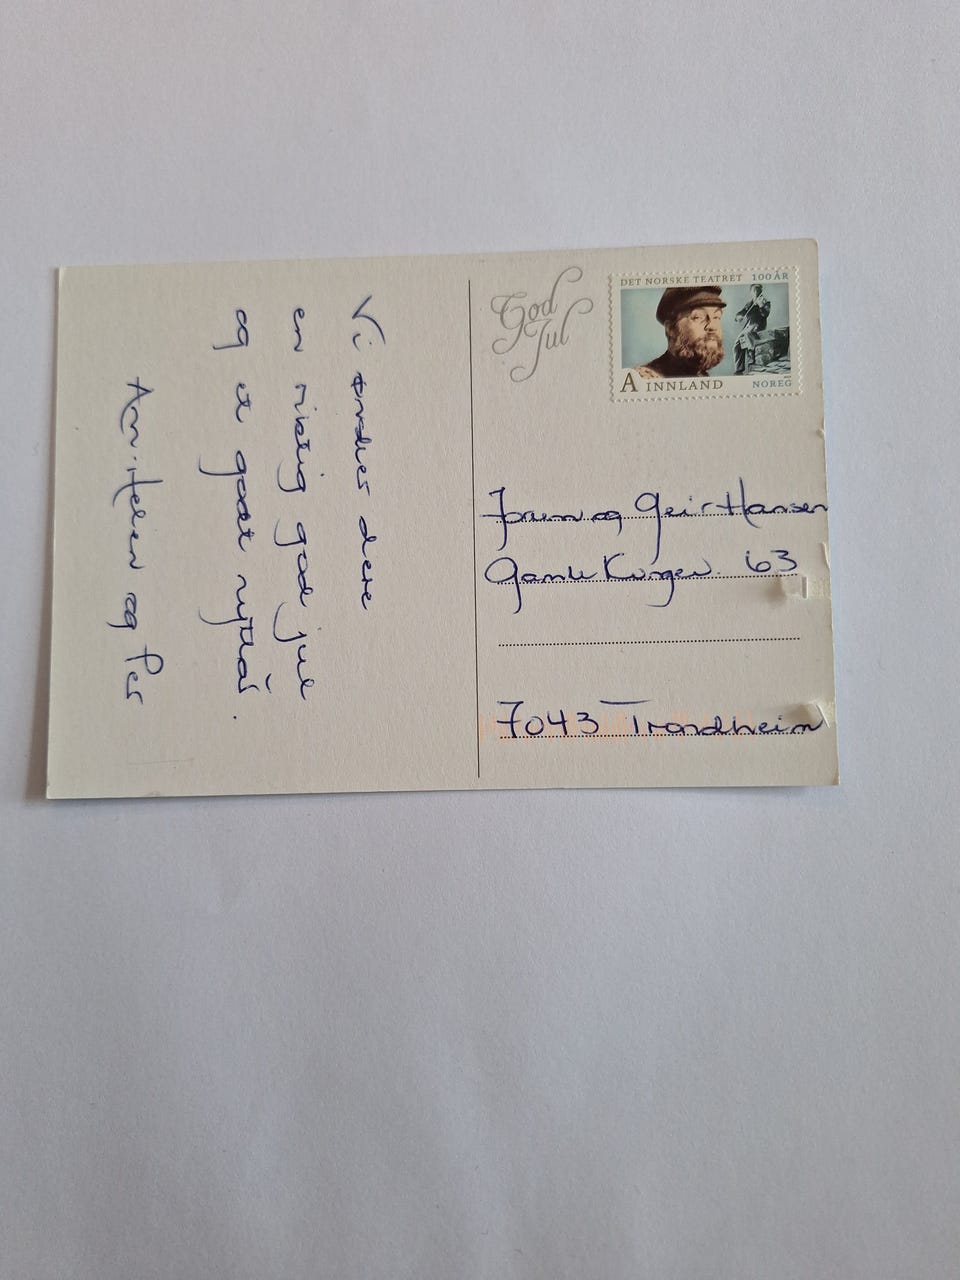 Vi ønsker dere
en riktig god jul
og et godt nyttår.
Ann-Helen og Per
God
Jul
DET NORSKE TEATRET 100 ÅR
A INNLAND
NOREG
Jorunn og Geir Hansen
63
7043 Trondheim